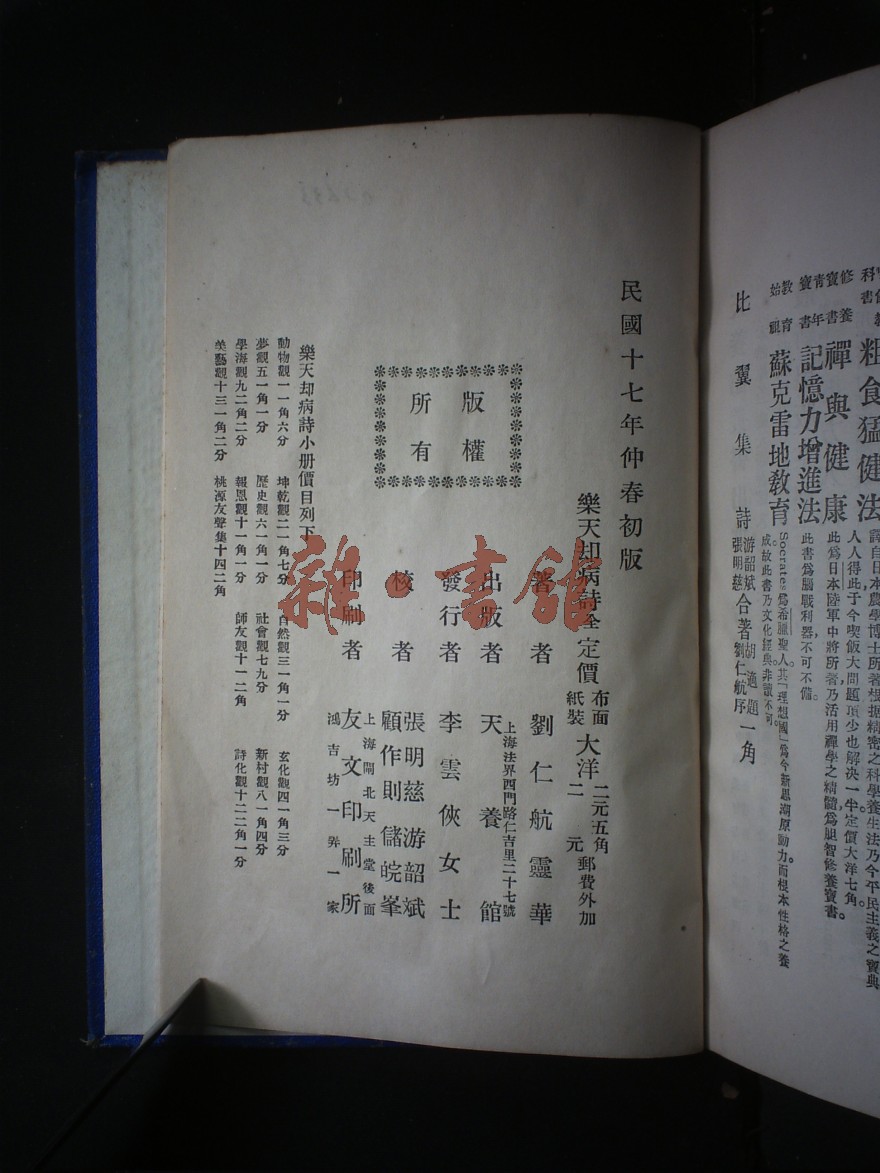 民國十七年仲春初版
樂天却病詩全定價布面紙裝大洋二元五角二元郵費外加
版權所有
著者劉仁航靈華
出版者天養館
上海法界西門路仁吉里二十七號
發行者李雲俠女士
核者張明慈游韶斌顧作則儲皖峯
印刷者友文印刷所
上海閘北天主堂後面
鴻吉坊一弄一家
樂天却病詩小册價目列下
動物觀一一角六分 坤乾觀二一角七分 自然觀三一角一分 玄化觀四一角三分
夢觀五一角一分 歷史觀六一角一分 社會觀七九分 新村觀八一角四分
學海觀九二角二分 報恩觀十一角一分 師友觀十一二角 詩化觀十二二角一分
美藝觀十三一角二分 桃源友聲集十四二角
粗食猛健法
譯自日本農學博士所著根據精密之科學養生法乃今平民主義之寶典
人人得此于今喫飯大問題頂少也解决一半定價大洋七角。
修養寶書禪與健康
此爲日本陸軍中將所著乃活用禪學之精髓爲胆智修養寶書。
青年寶書記憶力增進法
此書爲腦戰利器不可不備。
教育始祖蘇克雷地教育
Socrates爲希臘聖人。其「理想國」爲今新思潮原動力。而根本性格之養
成故此書乃文化經典。非讀不可。
比翼集詩
游韶斌張明慈合著胡適題劉仁航序一角
雜·書館